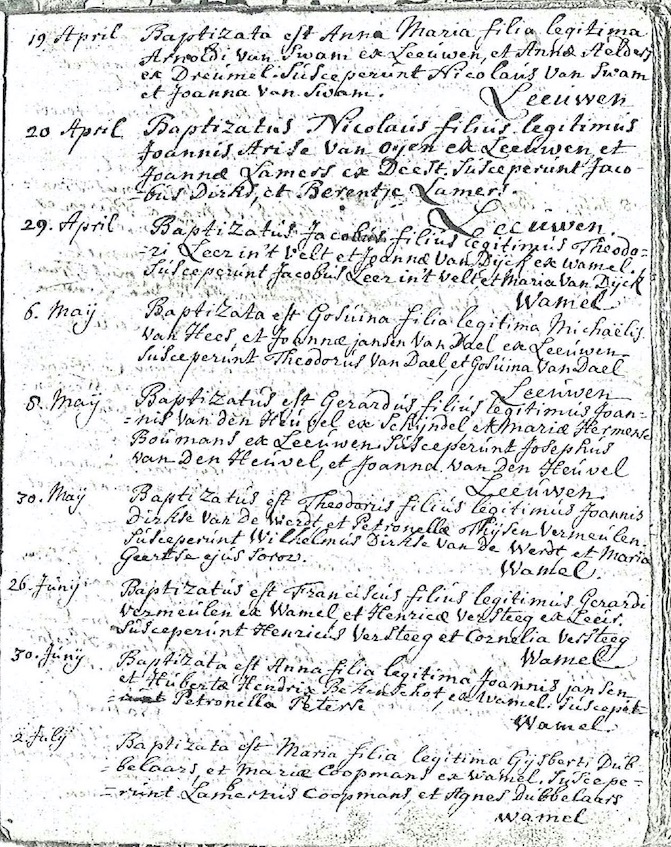 19 April Baptizata est Anna Maria filia legitima
Arnoldi van Swam ex Leeuwen, et Annæ Aelders
ex Dreumel. Susceperunt Nicolaus Van Swam
et Joanna van Swam.
Leeuwen
20 April Baptizatus Nicolaus filius legitimus
Joannis Arise van oyen ex Leeuwen et
Joannæ Lamers ex Deest. Susceperunt Jaco-
-bus Dirks, et Berentje Lamers.
Leeuwen.
29. April Baptizatus Jacobus filius legitimus Theodo-
-ri Leer in't velt et Joannæ van Dyck ex wamel.
Susceperunt Jacobus Leer in't velt et maria van Dyck
Wamel
6. Maÿ Baptizata est Gosuina filia legitima Michaelis
van Hees et Joannæ jansen van Dael ex Leeuwen.
Susceperunt Theodorus van Dael, et Gosuina van Dael
Leeuwen
8. Maÿ Baptizatus est Gerardus filius legitimus Joan-
-nis van den Heuvel ex Schyndel et Mariæ Hermense
Boumans ex Leeuwen. Susceperunt Josephus
van Den Heuvel, et Joanna van den Heuvel
Leeuwen.
30. Maÿ Baptizatus est Theodorus filius legitimus Joannis
Dirkse van de werdt, et Petronellæ Thijsen vermeulen.
Susceperunt Wilhelmus Dirkse van de Werdt, et Maria
Geertse ejus soror.
Wamel.
26. Junÿ Baptizatus est Franciscus filius legitimus Gerardi
Vermeulen ex Wamel, et Henricæ versteeg ex Leur.
Susceperunt Henricus versteeg et Cornelia versteeg
Wamel
30. Junÿ Baptizata est Anna filia legitima Joannis jansen
et Hubertæ Hendrix ex Wamel. Suscepit
Petronilla Peterse
Wamel.
2 Julÿ Baptizata est Maria filia legitima Gijsberti Dub-
-belaars et Mariæ Coopmans ex wamel. Suscepe-
-runt Lamertus Coopmans, et Agnes Dubbelaars
wamel